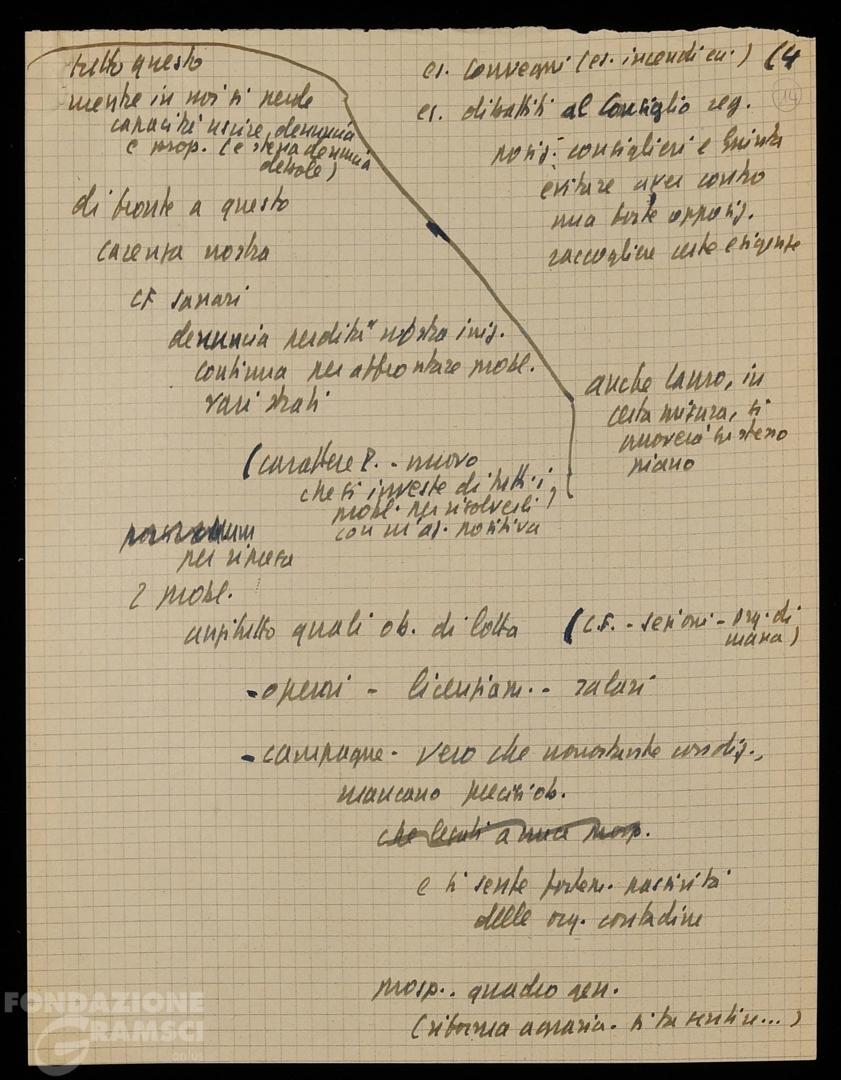 tutto questo
mentre in noi si perde
capacità unire, denuncia
e prop. (e stessa denuncia
debole)
di fronte a questo
carenza nostra
CF Sassari
denuncia perdita nostra iniz.
continua per affrontare probl.
vari strati
(carattere P. - nuovo
che si investe di tutti i
probl. per risolverli
con un'az. positiva
per ripresa
2 probl.
anzitutto quali ob. di lotta (C.F. - sezioni - org. di
massa)
- operai - licenziam. - salari
- campagne - vero che nonostante condiz.,
mancano precisi ob.
che legati a
e si sente fortem. passività
delle org. contadine
prosp. quadro gen.
(riforma agraria. si fa sentire...)
es. convegni (es. incendi ecc.) (4
14
es. dibattiti al Consiglio reg.
posiz. consiglieri e Giunta
evitare aver contro
una forte opposiz.
raccogliere certe esigenze
anche Lauro, in
certa misura, si
muoverà su stesso
piano
FONDAZIONE
GRAMSCI
onlus